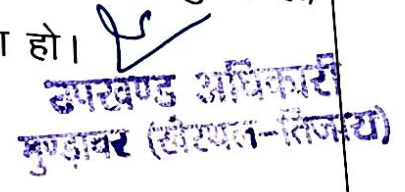 हो।
उपखण्ड अधिकारी
मुण्डावर (खैरथल-तिजारा)